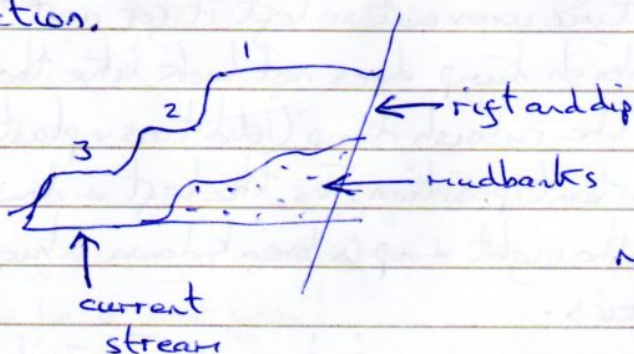 ction.
1
2
3
rift and dip
mudbanks
current
stream